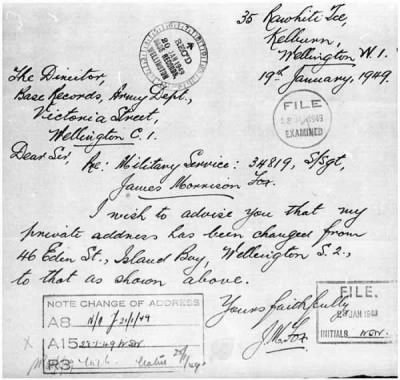 35 Rawhiti Tce,
Kelburn,
Wellington W.1.
19th January, 1949.
REC'D
20 JAN 1949
BASE RECORDS
WELLINGTON
The Director,
Base Records, Army Dept.,
Victoria Street,
Wellington C.1.
FILE
JAN 1949
EXAMINED
Dear Sir
Re: Military Service: 34819, S/Sgt,
James Morrison Fox.
I wish to advise you that my
private address has been changed from
46 Eden St., Island Bay, Wellington S.2.,
to that as shown above.
Yours faithfully
J.M. Fox
NOTE CHANGE OF ADDRESS
A8
X A15
R3
FILE.
JAN 1949
INITIALS